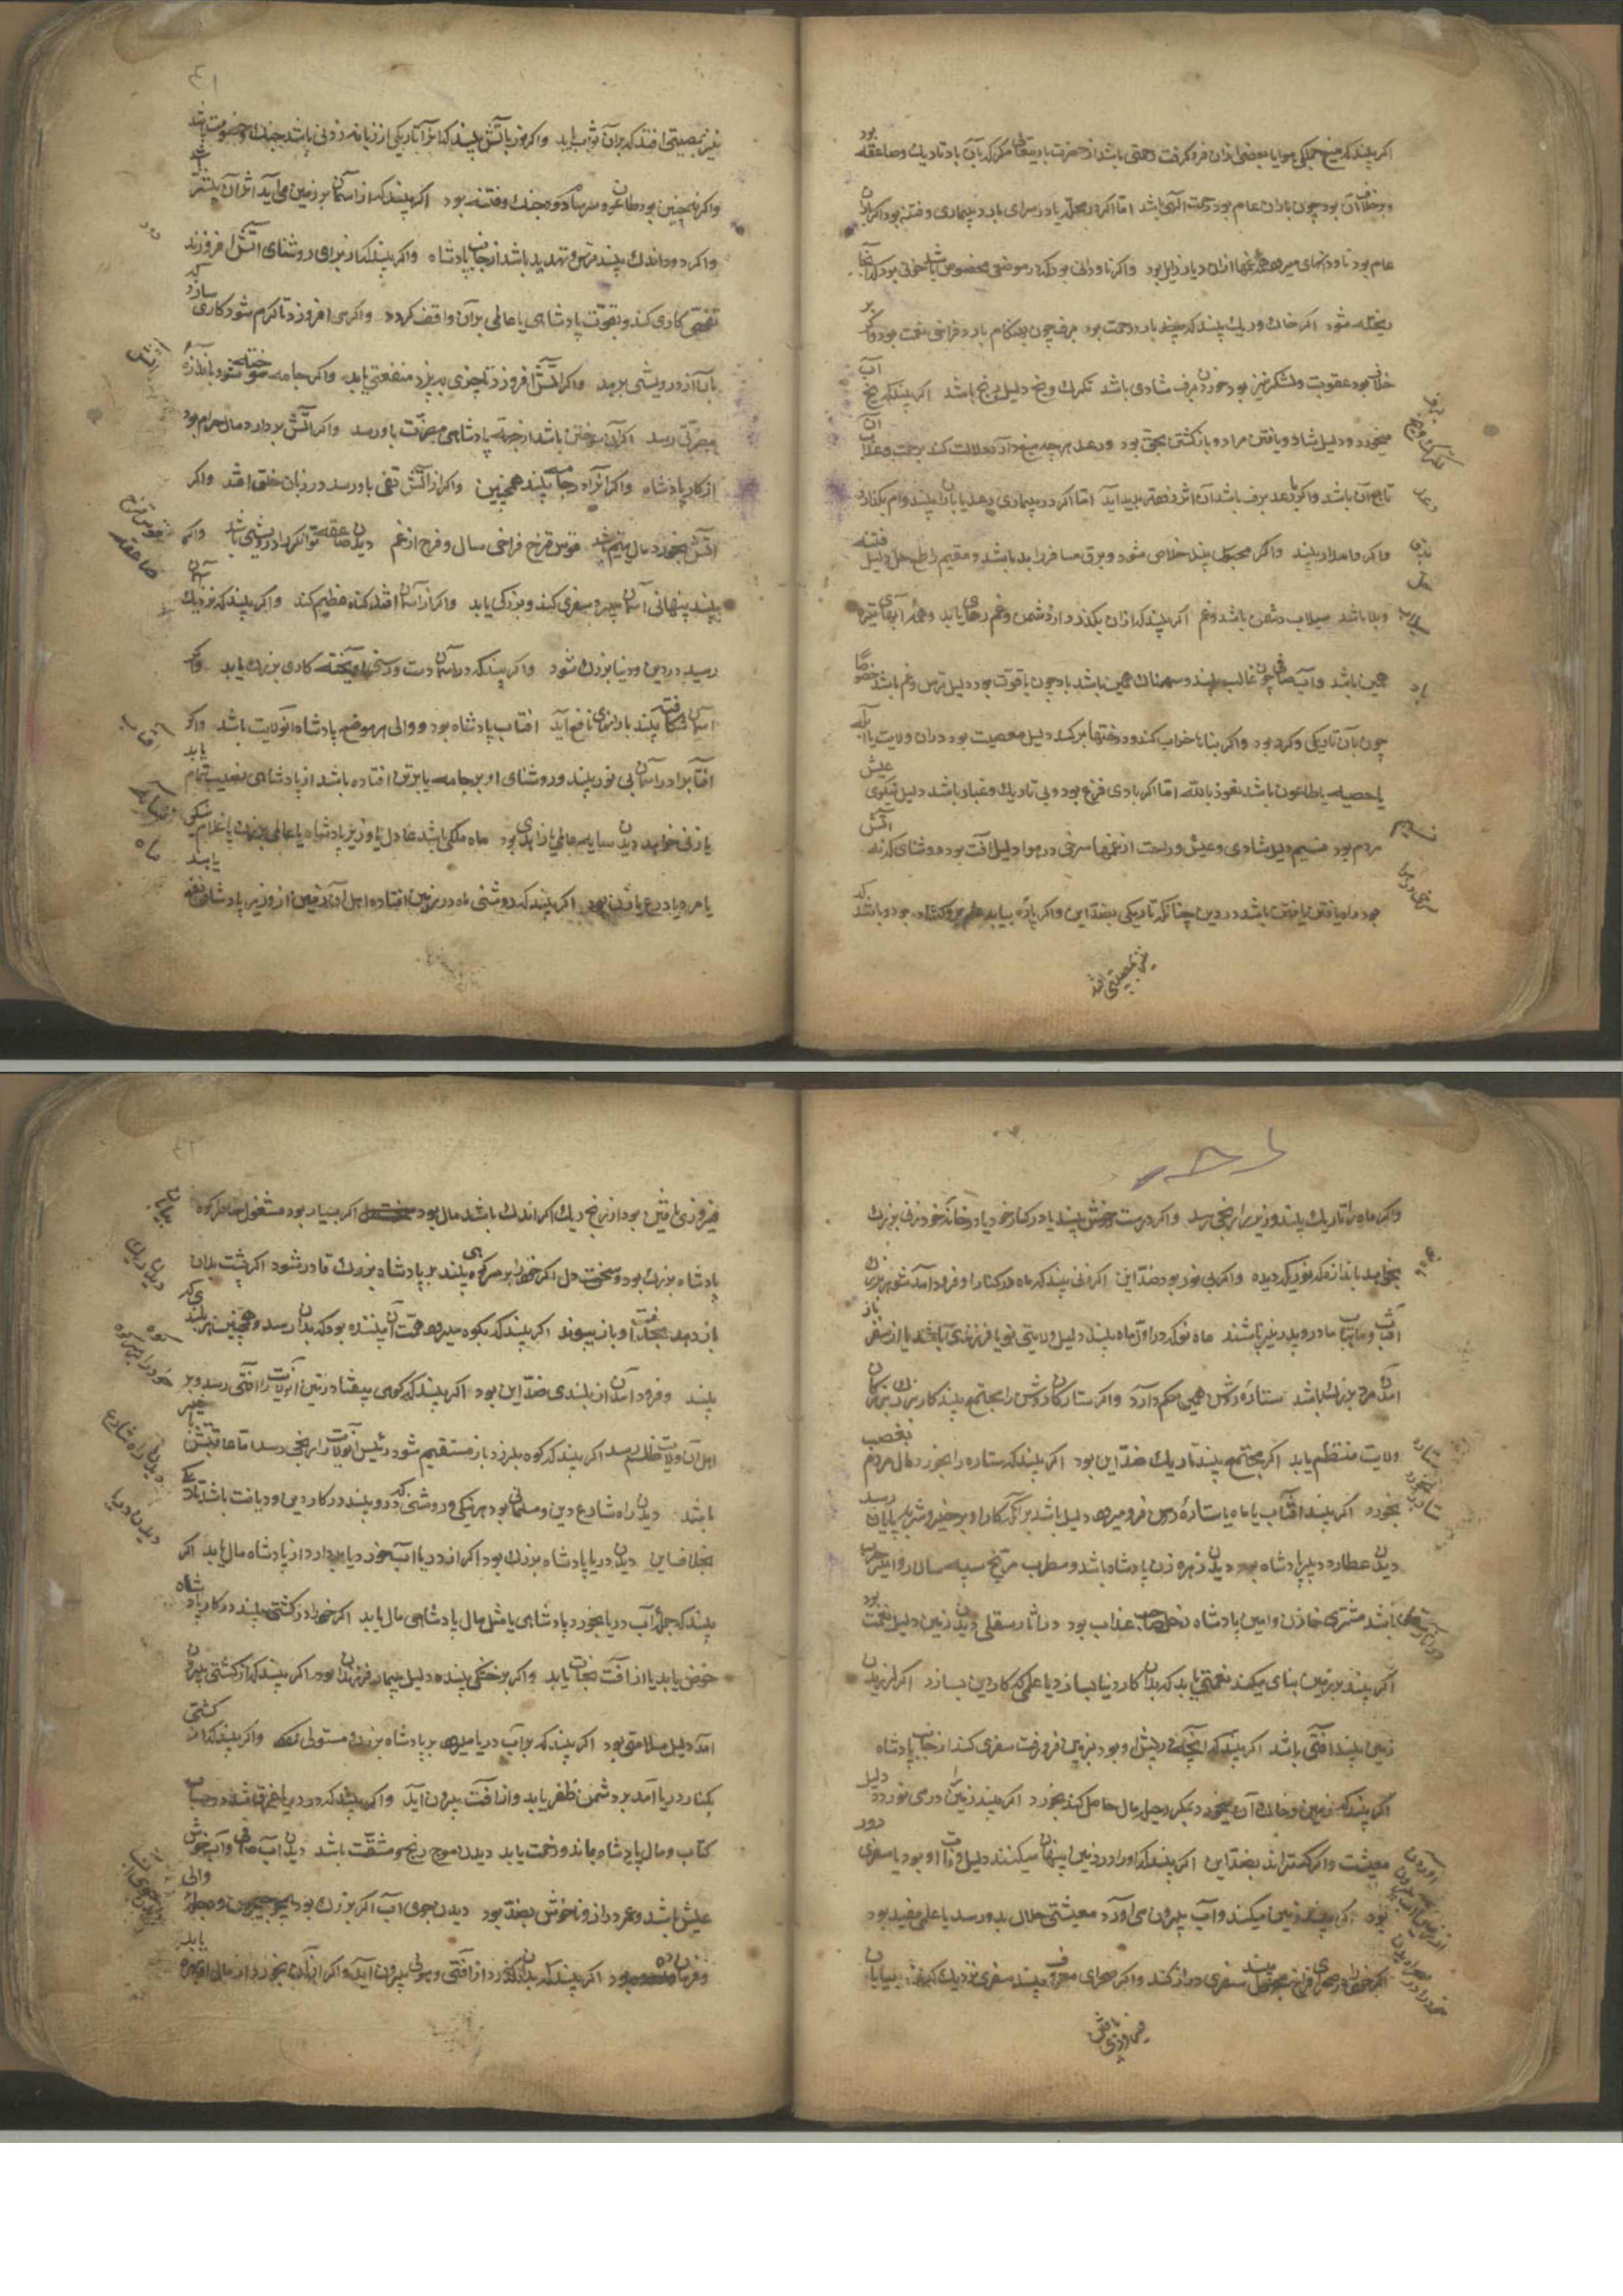 اکر بیند که میغ جملکی هوا یا بعضی ازان فرو کرفت رحمتی باشد از حضرت باریتعالی مکر که بآن باد تاریك و صاعقه بود
و برخلاف آن بود چون باران عام بود رحمت الهی باشد اما اکر در محله یا در سرای بارد بیماری و فتنه بود اکر باران
عام بود ناودانهای میرود همه غمها ازان دیار زایل بود واکر ناودانی بود که در موضعی مخصوص باشد خونی بود که آنجا
ریخته شود اکر خاك و ریك بیند که میغ بارد رحمت بود برف چون بهنکام بارد فراخی نعمت بود واکر بر
خلاف بود عقوبت و لشکر نیز بود خوردن برف شادی باشد تکرك و یخ دلیل رنج باشد اکر بیند که یخ آب
میخورد دلیل شادی و یافتن مراد و بازکشتن بحق بود رعد هر چه میغ دارد دلالت کند برحمت و عذاب آن
تابع آن باشد واکر با رعد برف باشد آن اثر زودتر پدید آید اما اکر در بیماری رعد با باران بیند وام بکذارد
واکر وامدار بیند واکر محبوس بیند خلاص شود و برق مسافر را بد باشد و مقیم را طمع دلیل فتنه
و بلا باشد سیلاب دشمن باشد و غم اکر بیند که ازان بکذرد از دشمن و غم رهای یابد و همه آبهای تیره
همین باشد و آب صافی چون غالب بیند و سهمناك همین باشد باد چون باقوت بود دلیل ترس و غم باشد خصوصا
چون بآن تاریکی و کرد بود واکر بناها خراب کند و درختها برکند دلیل معصیت بود دران ولایت یا آبله
یا حصبه یا طاعون باشد نعوذ بالله اما اکر بادی فرخ بود و بی تاریك و غبار باشد دلیل نیکوی عیش
مردم بود نسیم دلیل شادی و عیش و راحت از غمها سرخی در هوا دلیل آفت بود روشنای آتش که
بود راه یافتن باشد در دین چنانکه تاریکی بضد این
نیز بمصیبتی افتد
برف
تکرك و یخ
رعد
برق
سیل
باد
نسیم
نیز بمصیبتی افتد که بران ثواب یابد واکر نور یا آتش بیند که اثر آتار یکی از زبانه زدنی باشد جنك و خصومت باشد
واکر نه چنین بود طاعون و سرسام و جنك و فتنه بود اکر بیند که از آسمان بر زمین می آید اثر آن بیشتر باشد
واکر دود اندك بیند ترس و تهدید باشد از جانب پادشاه واکر بیند که از برای روشنای آتش افروزند
تفحص کاری کند و بقوت پادشاهی یا عالمی بران واقف کردد واکر می افروزد تا کرم شود کاری سازد که
بآن از درویشی برهد واکر آتش افروزد تا چیزی بپزد منفعتی یابد واکر جامه سوخته شود باندازه آن
مضرتی رسد اکر آن سوختن باشد از جهة پادشاهی مضرت باو رسد واکر آتش بردارد مال حرام بود
از کار پادشاه واکر آنرا در جامه بیند همچنین واکر از آتش تفی باو رسد در زبان خلق افتد واکر
آتش بخورد مال یتیم باشد قوس قزح فراخی سال و فرح از غم دیدن صاعقه توانکر را درویشی باشد واکر
بیند پنهانی آسمان میرود سفری کند و بزرکی یابد واکر از آسمان افتد کناه عظیم کند واکر بیند که نزدیك آسمان
رسید در دین و دنیا بزرك شود واکر بیند که در آسمان دست و رسنی آویخته کاری بزرك یابد واکر
آسمان شکافته بیند بارانهای نافع آید افتاب پادشاه بود و والی هر موضع پادشاه آنولایت باشد واکر
آفتاب را در آسمان بی نور بیند و روشنای او بر جامه یا برتن افتاده باشد از پادشاهی نصیب تمام یابد
یا زنی خواهد دیدن سایه عالمی یا زاهدی بود ماه ملکی باشد عادل یا وزیر پادشاه یا عالمی بزرك یا غلام نیکو
یا مرد یا دروغ یا زن بود اکر بیند که روشنی ماه در زمین افتاده اهل آن زمین از وزیر پادشاه نفع یابند
دود
آتش
قوس قزح
صاعقه
آفتاب
ماه
واکر ماه را تاریك بیند وزیر را رنجی رسد واکر درست و خوش بیند یا در کنار خود یا در خانه خود زنی بزرك
بخواهد باندازه که نور یکه دیده واکر بی نور بود ضد این اکر زنی بیند که ماه در کنار او فرود آمد شوهر بزرك
آفتاب و ماهتاب مادر و پدر نیز باشند ماه نو که در اول ماه بیند دلیل ولایتی نو یا فرزندی باشد یا از سفر باز
آمدن مرد بزرك باشد ستاره روشن همین حکم دارد واکر ستارکان روشن را مجتمع بیند کار بزرك بزرکان
ولایت منتظم یابد اکر مجتمع بیند تاریك ضد این بود اکر بیند که ستاره را بخورد مال مردم بغصب
بخورد اکر بیند افتاب یا ماه یا ستاره در زمین فرو میرود دلیل باشد بر آنکه کار او بر خیر و شر بپایان رسد
دیدن عطارد دبیر پادشاه بود دیدن زهره زن پادشاه باشد و مطرب مریخ سپه سالار و امیر حرب
باشد مشتری خازن و امین پادشاه زحل صاحب عذاب بود در آثار سفلی دیدن زمین دلیل نعمت بود
اکر بیند بر زمین بنای میکند نعمتی یابد که بدان کار دنیا بسازد یا علمی که کار دین بسازد اکر لرزیدن
زمین بیند آفتی باشد اکر بیند که آنچه در پیش او بود بزمین فرو رفت سفری کند از جانب پادشاه
اکر بیند که زمین و خاك آن میخورد بمکر و حیل مال حاصل کند و بخورد اکر بیند زمین را درمی نوردد دلیل
معیشت واکر کستراند بضد این اکر بیند که اورا در زمین پنهان میکنند دلیل وفات او بود یا سفری دور
بود اکر بیند زمین میکند و آب بیرون می آورد معیشتی حلال بدو رسد یا علمی مفید بود
اکر خود را در صحرای فراخ بیند سفری دراز کند واکر صحرای معروف بیند سفری نزدیك کند بیابان
فیروزی یافتن
ماه
ستاره
فیروزی یافتن بود از رنج ریك اکر اندك باشد مال بود اکر بسیار بود مشغولی خاطر کوه
پادشاه بزرك بود و سخت دل اکر خود را بر سر کوهی بیند بر پادشاه بزرك قادر شود اکر پشت بدان
باز دهد بخدمت او باز پیوندد اکر بیند که بکوه میرود همت آن بیننده بود که بدان رسد و همچنین هر بلندی که
بیند و فرود آمدن از بلندی ضد این بود اکر بیند که کوهی بیفتاد رئیس آنولایت را آفتی رسد و بر
اهل آن ولایت ظلم رسد اکر بیند که کوه بلرزد باز مستقیم شود رئیس آنولایت را رنجی رسد اما عاقبتش بخیر
باشد دیدن راه شارع دین و مسلمانی بود هر نیکی و روشنی که درو بیند در کار دین و دیانت باشد
بخلاف این دیدن دریا پادشاه بزرك بود اکر از دریا آب خورد یا بردارد از پادشاه مال یابد اکر
بیند که جمله آب دریا بخورد پادشاهی یا مثل مال پادشاهی مال یابد اکر خود را در کشتی بیند در کار پادشاه
خوض یابد یا از آفت نجات یابد واکر بر خشکی بیند دلیل بیماری فرزندان بود اکر بیند که از کشتی بیرون
آمد دلیل سلامتی بود اکر بیند که بر آب دریا میرود بر پادشاه بزرك مستولی شود واکر بیند که از کشتی
بکنار دریا آمد بر دشمن ظفر یابد و از آفت بیرون آید واکر بیند که در دریا غرق شد در حساب
کتاب و مال پادشاه بماند و زحمت یابد دیدن موج رنج و مشقت باشد دیدن آب صافی و آب خوش
عیش باشد و عمر دراز و ناخوش بضد بود دیدن جوی آب اکر بزرك بود چون جیحون و دجله والی
و فرمانده بود اکر بیند که بدان بکذرد از آفتی و هولی بیرون آید واکر از آن بخورد از مال او بهره یابد
بیابان
دیدن ریك
کوه
دیدن راه شارع
دیدن دریا